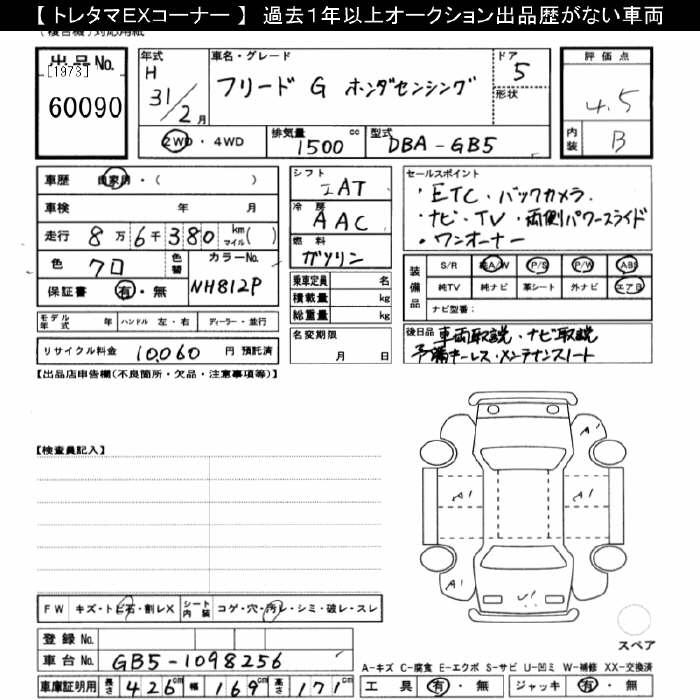 【 トレタマEXコーナー 】 過去１年以上オークション出品歴がない車両
出品No.
[1973]
60090
年式 H 31/2月
車名・グレード フリード G ホンダセンシング
ドア 5
形状
2WD・4WD
排気量 1500 cc
型式 DBA-GB5
評価点
4.5
内装 B
車歴 自家用・( )
車検 年 月
走行 8万6千380 km マイル( )
色 クロ 色替 カラーNo. NH812P
保証書 有・無
シフト IAT
冷房 AAC
燃料 ガソリン
乗車定員 名
積載量 kg
総重量 kg
セールスポイント
・ETC・バックカメラ.
・ナビ・TV・両側パワースライド
・ワンオーナー
装備品 S/R 純A/W P/S P/W ABS
純TV 純ナビ 革シート 外ナビ エアB
ナビ型番:
モデル年式 年 ハンドル 左・右 ディーラー・並行
リサイクル料金 10,060 円 預託済
名変期限 月 日
後日品 車両取説・ナビ取説
予備キーレス・メンテナンスノート
【出品店申告欄(不良箇所・欠品・注意事項等)】
【検査員記入】
A1
A1
A1
A1
U1
FW キズ・トビ石・割レX シート内装 コゲ・穴・汚レ・シミ・破レ・スレ
スペア
登録No.
車台No. GB5-1098256
A-キズ C-腐食 E-エクボ S-サビ U-凹ミ W-補修 XX-交換済
車庫証明用 長さ 426cm 幅 169cm 高さ 171cm
工具 有・無 ジャッキ 有・無